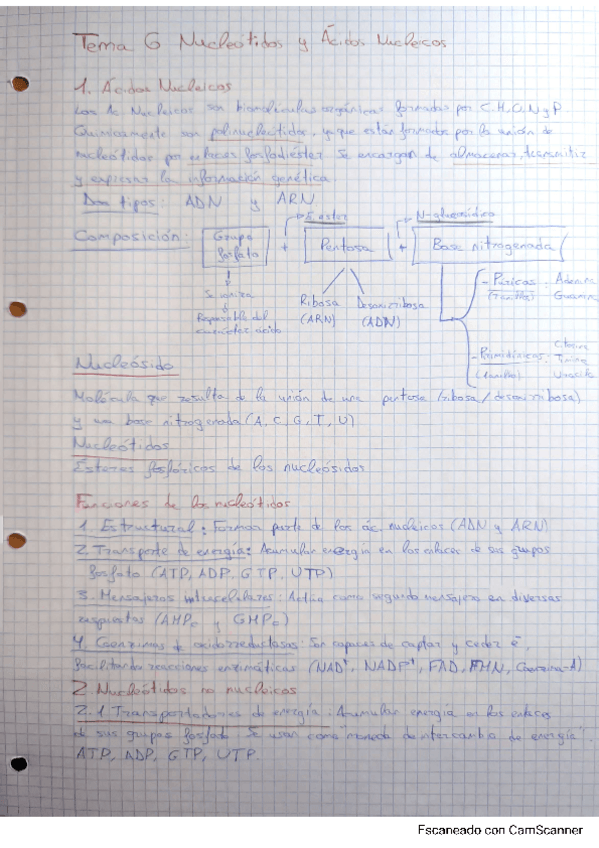 Tema 6 Nucleótidos y Ácidos Nucleicos
1. Ácidos Nucleicos
Los Ac. Nucleicos son biomoléculas orgánicas formadas por C,H,O,N y P
Químicamente son polinucleótidos, ya que están formados por la unión de
nucleótidos por enlaces fosfodiéster. Se encargan de almacenar, transmitir
y expresar la información genética
Dos tipos: ADN y ARN
E. ester N-glucosídico
Composición: Grupo fosfato + Pentosa + Base nitrogenada
Se ioniza
Responsable del carácter ácido
Ribosa (ARN) Desoxirribosa (ADN)
- Púricas: Adenina
Guanina
- Pirimidínicas: Citosina
Timina
Uracilo
Nucleósido
Molécula que resulta de la unión de una pentosa (ribosa/desoxirribosa)
y una base nitrogenada (A, C, G, T, U)
Nucleótidos
Ésteres fosfóricos de los nucleósidos
Funciones de los nucleótidos
1. Estructural: Forman parte de los ác. nucleicos (ADN y ARN)
2. Transporte de energía: Acumulan energía en los enlaces de sus grupos
fosfato (ATP, ADP, GTP, UTP)
3. Mensajeros intracelulares: Actúa como segundo mensajero en diversas
respuestas (AMPc y GMPc)
4. Coenzimas de oxidorreductasas: Son capaces de captar y ceder e⁻,
facilitando reacciones enzimáticas (NAD⁺, NADP⁺, FAD, FMN, Coenzima-A)
2 Nucleótidos no nucleicos
2.1 Transportadores de energía: Acumulan energía en los enlaces
de sus grupos fosfato. Se usan como "moneda de intercambio de energía".
ATP, ADP, GTP, UTP.
Escaneado con CamScanner